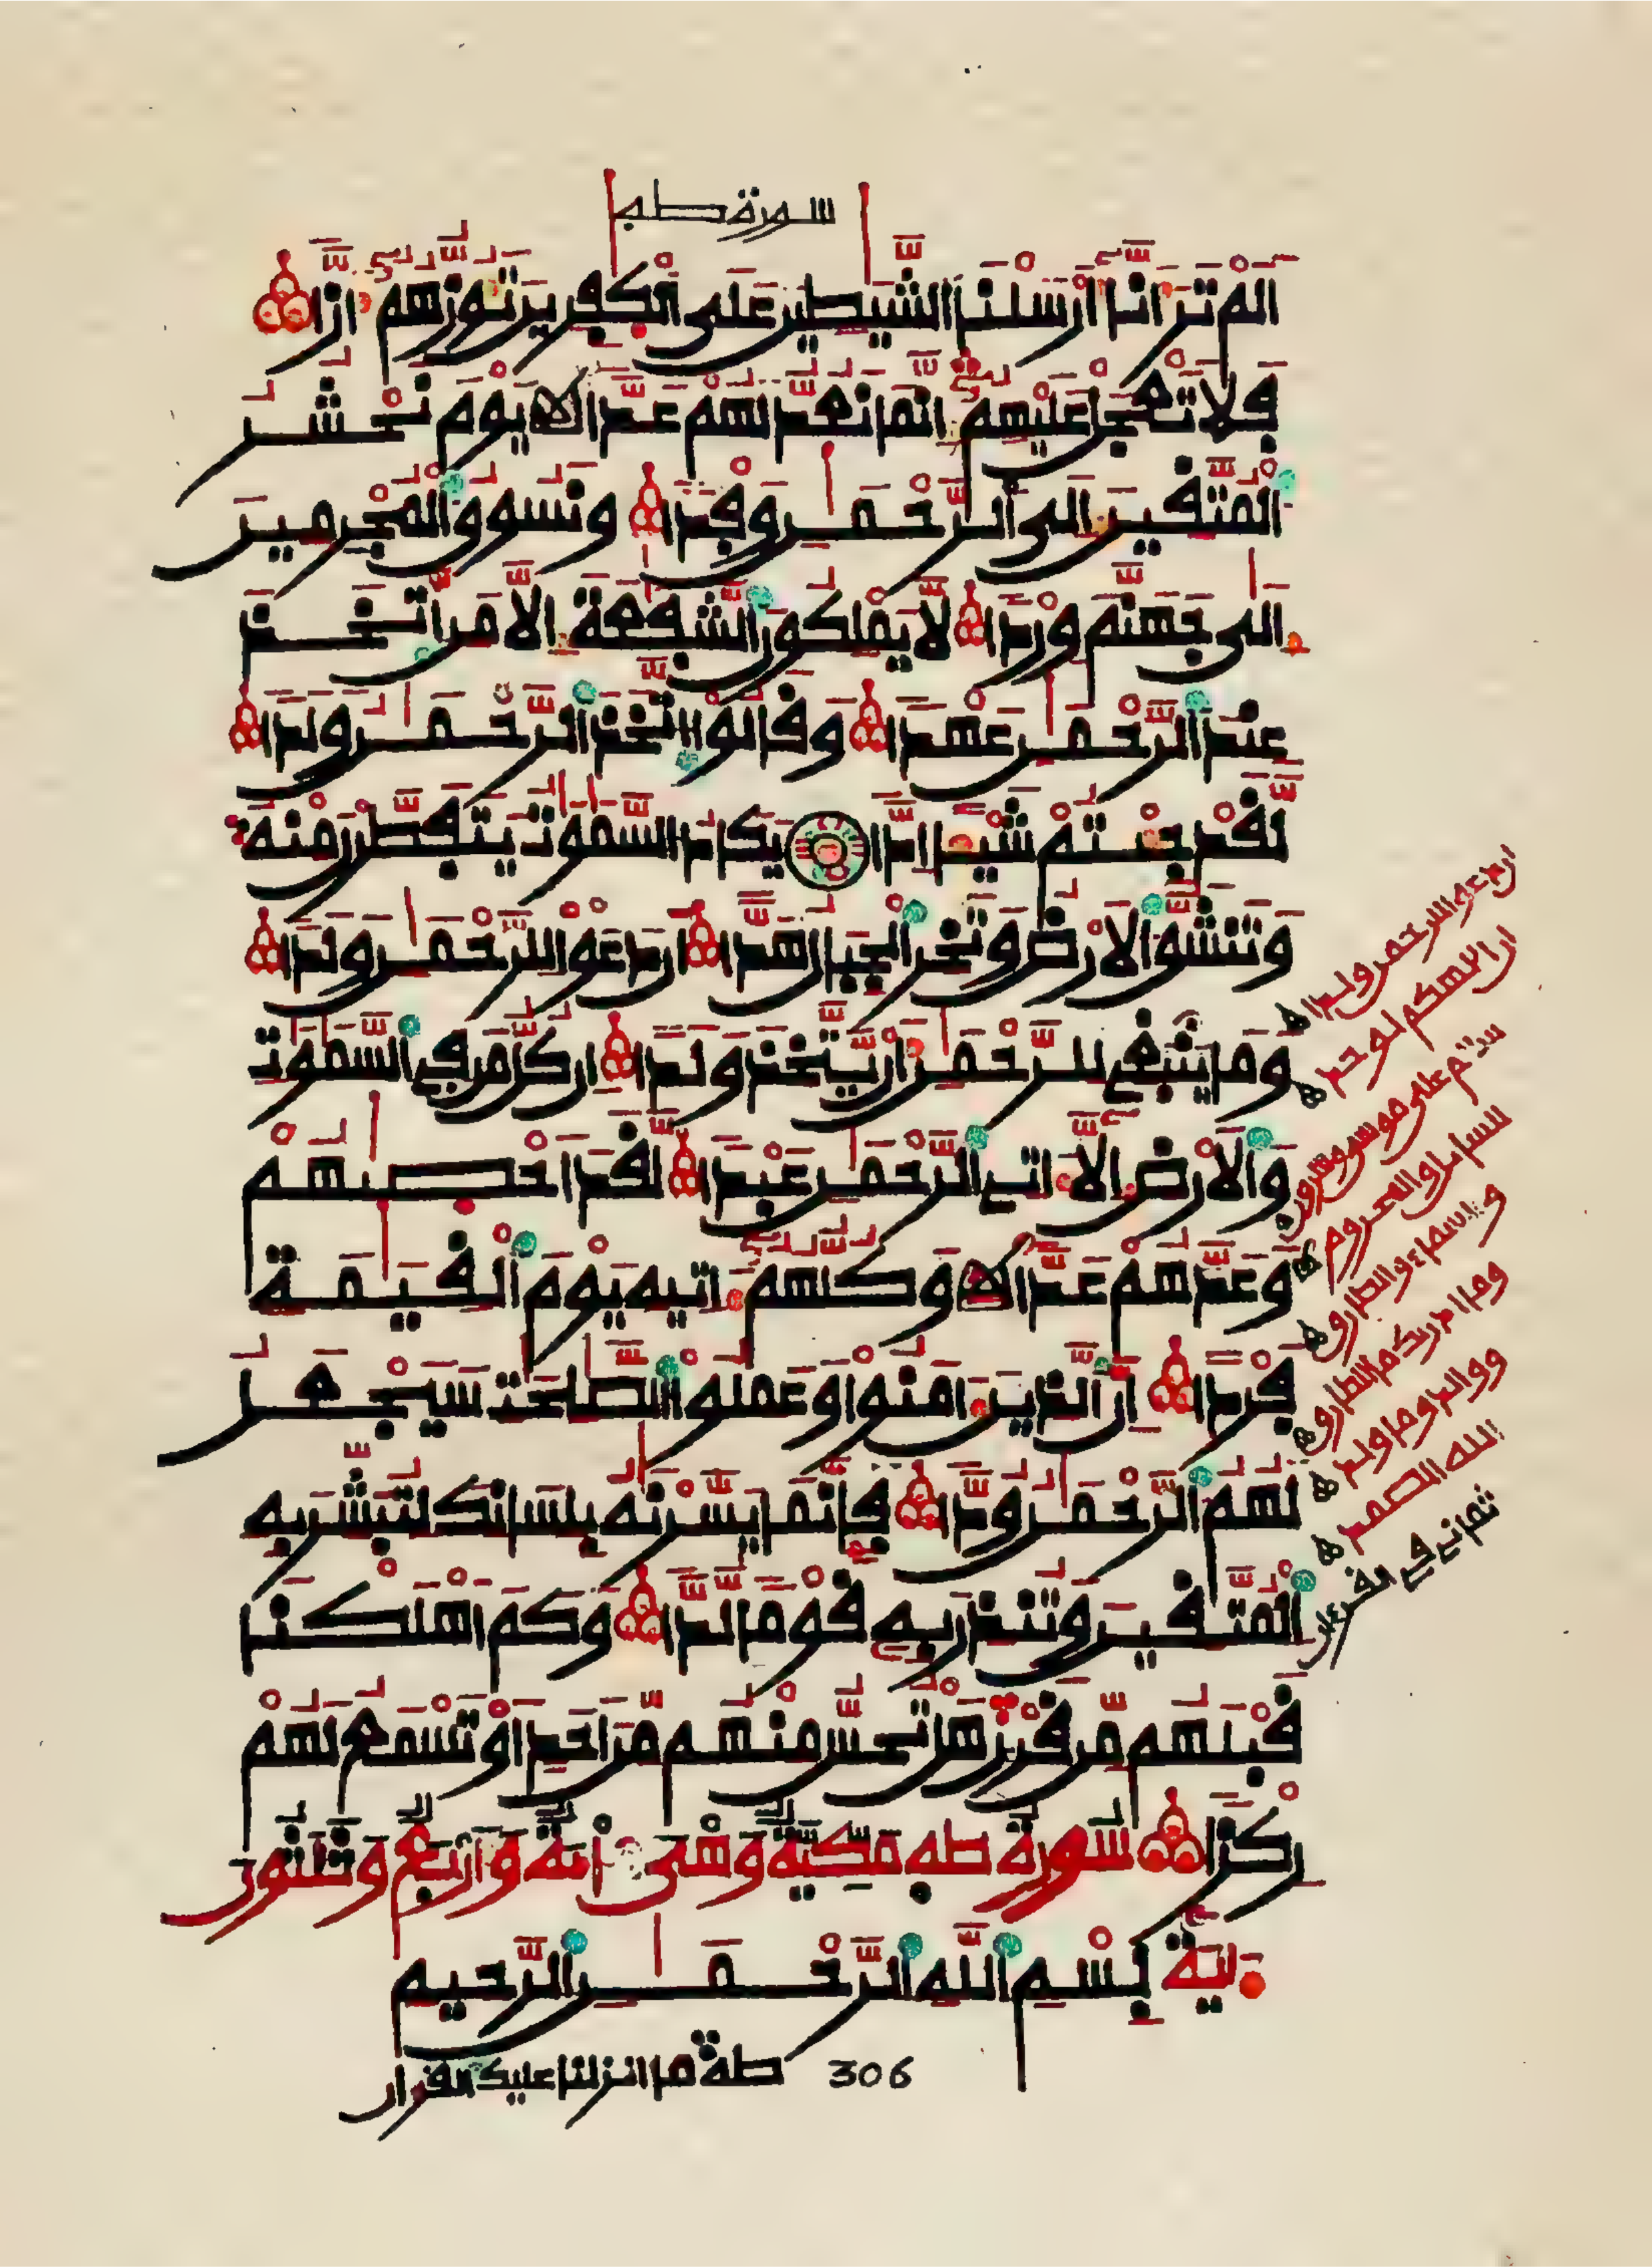 سورة طه
الم تر انا ارسلنا الشيطين على الكفرين تؤزهم ازا
فلا تعجل عليهم انما نعد لهم عدا الا يوم نحشر
المتقين الى الرحمن وفدا ونسوق المجرمين
الى جهنم وردا لا يملكون الشفعة الا من اتخذ
عند الرحمن عهدا وقالوا اتخذ الرحمن ولدا
لقد جئتم شيئا ادا يكاد السموت يتفطرن منه
وتنشق الارض وتخر الجبال هدا ان دعوا للرحمن ولدا
وما ينبغي للرحمن ان يتخذ ولدا ان كل من في السموت
والارض الا اتي الرحمن عبدا لقد احصيهم
وعدهم عدا الا وكلهم اتيه يوم القيمة
فردا ان الذين امنوا وعملوا الصلحت سيجعل
لهم الرحمن ودا فانما يسرنه بلسانك لتبشر به
المتقين وتنذر به قوما لدا وكم اهلكنا
قبلهم من قرن هل تحس منهم من احد او تسمع لهم
ركزا سورة طه مكية وهي ماية واربع وثلثون
اية بسم الله الرحمن الرحيم
306 طه ما انزلنا عليك القران
ان دعوا للرحمن ولدا
ان الهكم لوحد
سلم على موسى وهرون
للسايل والمحروم
والسماء والطارق
وما ادريك ما الطارق
ووالد وما ولد
الله الصمد
ثمانية في القرءان